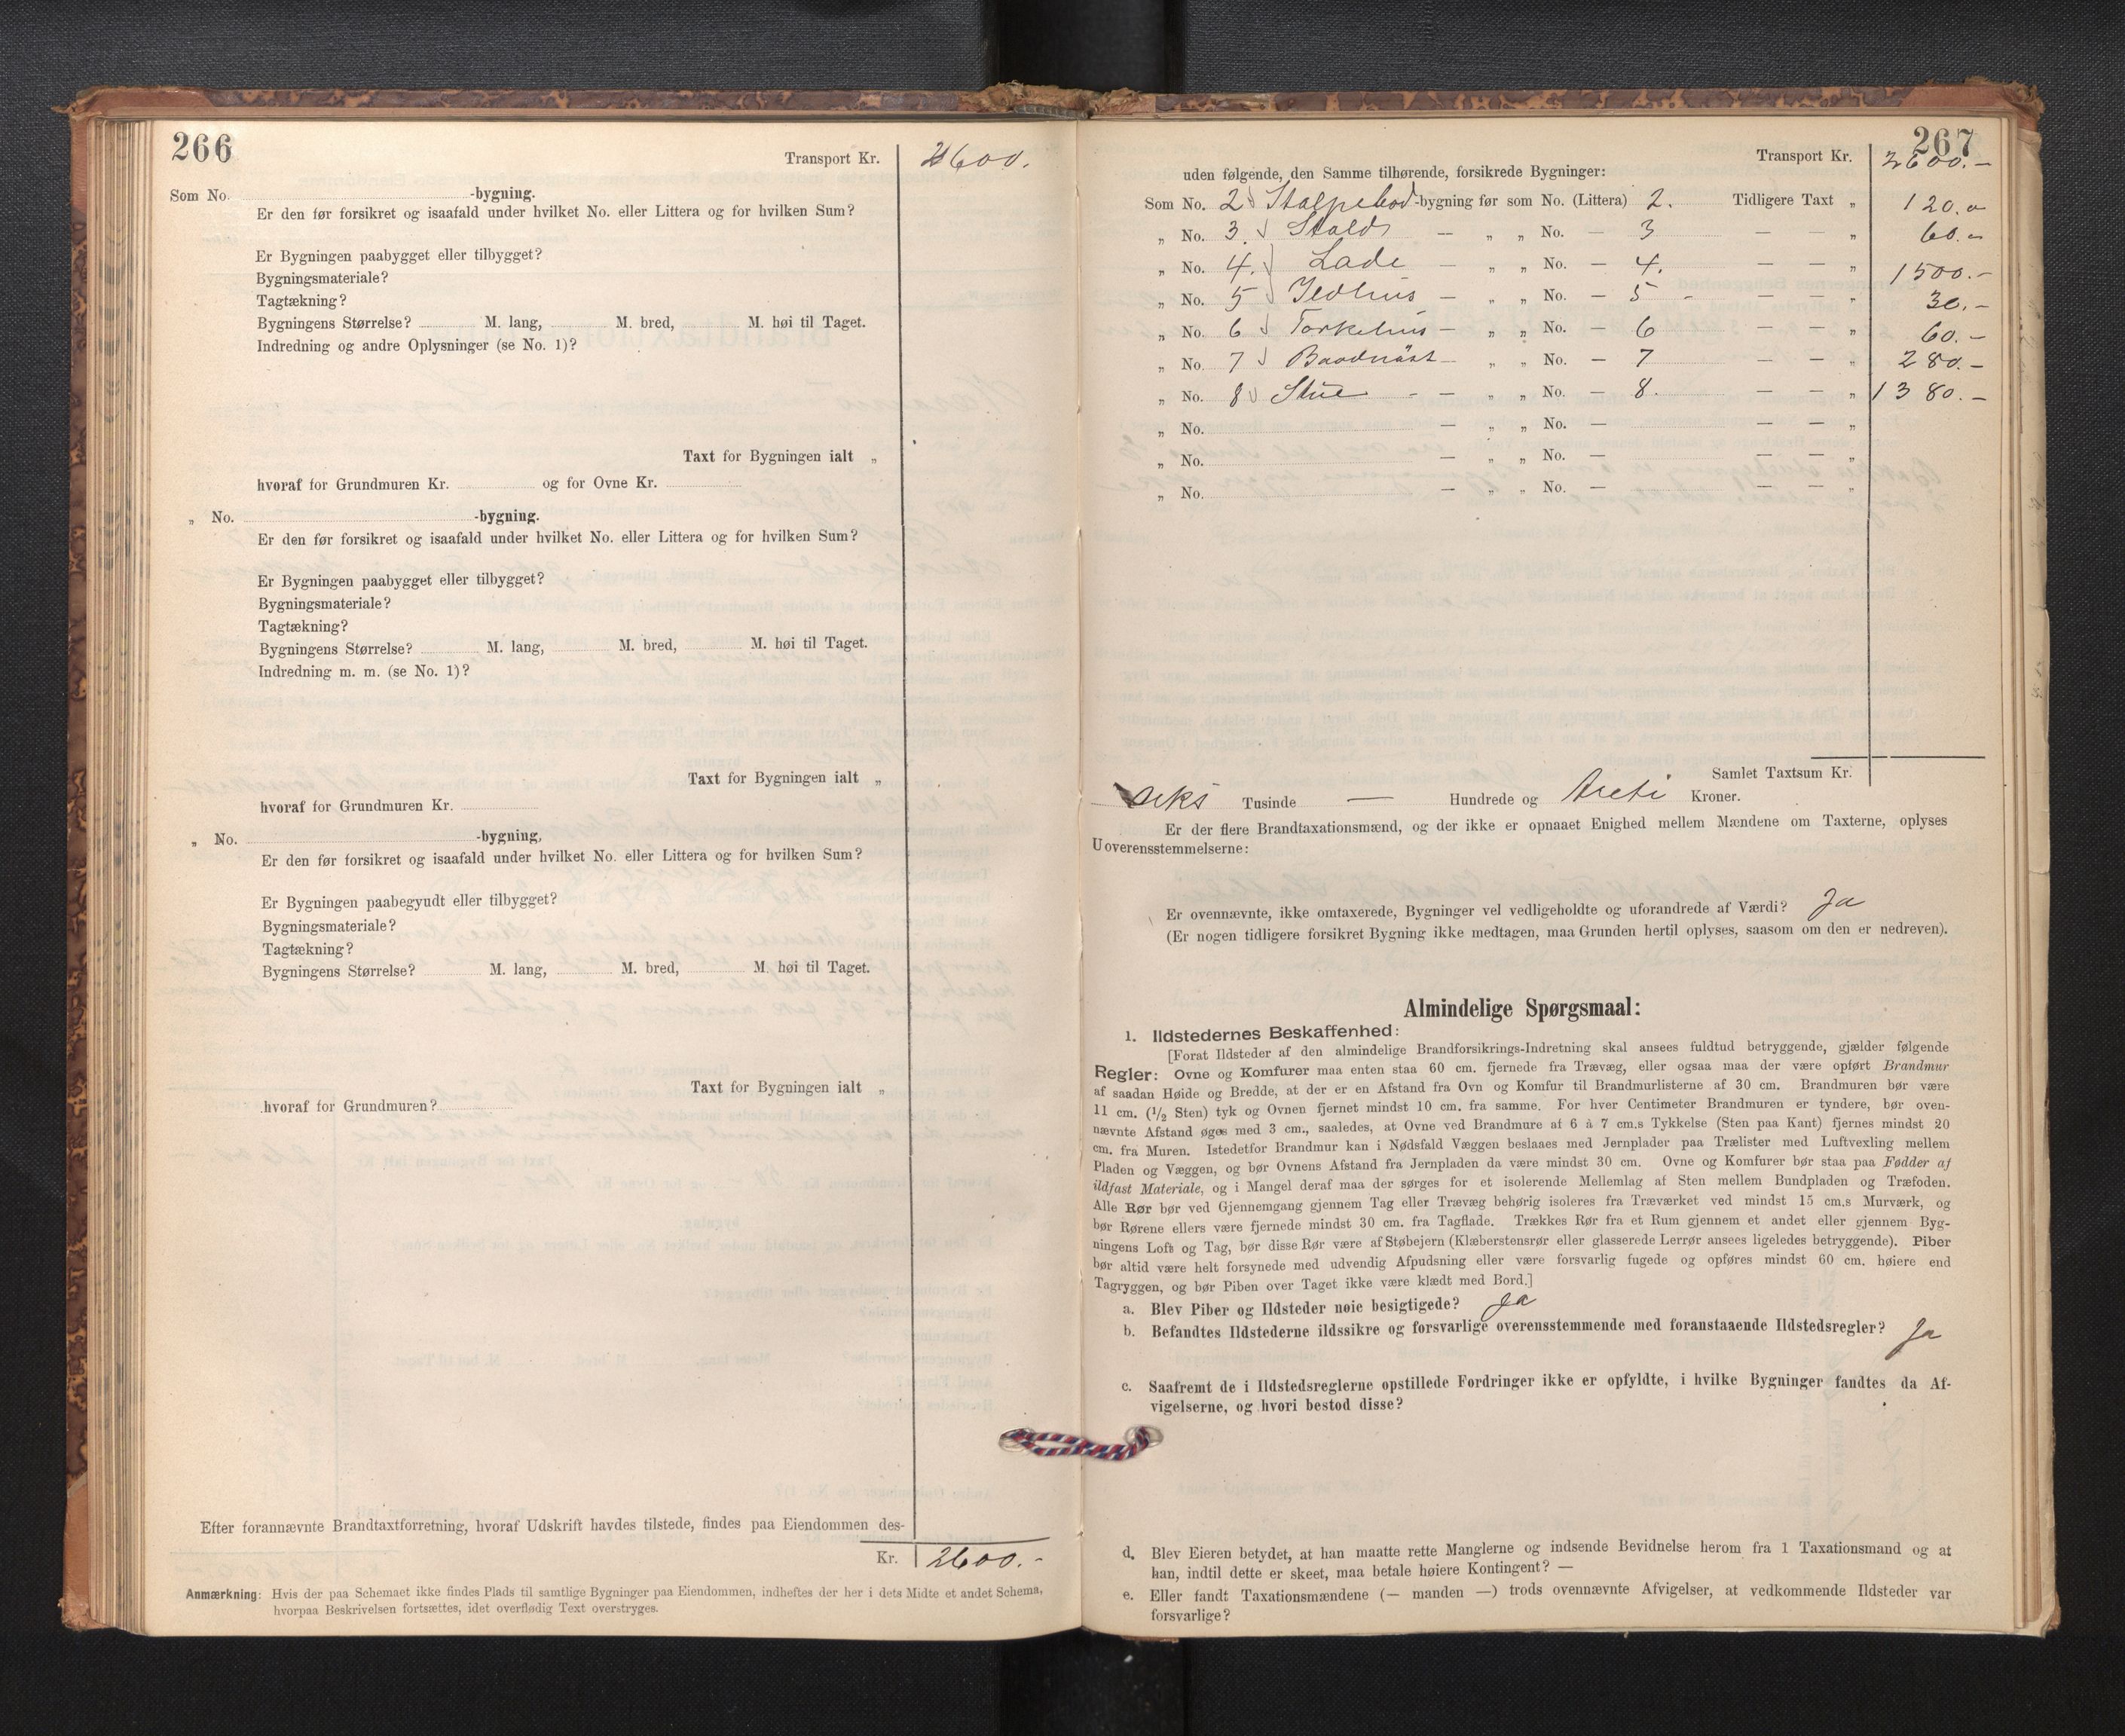 266
Transport Kr. 2600.
Som No. -bygning.
Er den før forsikret og isaafald under hvilket No. eller Littera og for hvilken Sum?
Er Bygningen paabygget eller tilbygget?
Bygningsmateriale?
Tagtækning?
Bygningens Størrelse? M. lang, M. bred, M. høi til Taget.
Indredning og andre Oplysninger (se No. 1)?
Taxt for Bygningen ialt „
hvoraf for Grundmuren Kr. og for Ovne Kr.
„ No. -bygning.
Er den før forsikret og isaafald under hvilket No. eller Littera og for hvilken Sum?
Er Bygningen paabygget eller tilbygget?
Bygningsmateriale?
Tagtækning?
Bygningens Størrelse? M. lang, M. bred, M. høi til Taget.
Indredning m. m. (se No. 1)?
Taxt for Bygningen ialt „
hvoraf for Grundmuren Kr.
„ No. -bygning,
Er den før forsikret og isaafald under hvilket No. eller Littera og for hvilken Sum?
Er Bygningen paabegyudt eller tilbygget?
Bygningsmateriale?
Tagtækning?
Bygningens Størrelse? M. lang, M. bred, M. høi til Taget.
Taxt for Bygningen ialt „
hvoraf for Grundmuren?
Efter forannævnte Brandtaxtforretning, hvoraf Udskrift havdes tilstede, findes paa Eiendommen des-
Kr. 2600.-
Anmærkning: Hvis der paa Schemaet ikke findes Plads til samtlige Bygninger paa Eiendommen, indheftes der her i dets Midte et andet Schema,
hvorpaa Beskrivelsen fortsættes, idet overflødig Text overstryges.
267
Transport Kr. 2600.-
uden følgende, den Samme tilhørende, forsikrede Bygninger:
Som No. 2 Stolpebod-bygning før som No. (Littera) 2. Tidligere Taxt „ 120.-
„ No. 3. Stald — „ „ No. — 3 — — „ 60.-
„ No. 4. Lade — „ „ No. — 4. — — „ 1500.-
„ No. 5 Ildhus — „ „ No. — 5 - — — „ 30.-
„ No. 6 Torkehus — „ „ No. — 6 — — „ 60.-
„ No. 7 Baadnøst — „ „ No. — 7 — — „ 280.-
„ No. 8 Stue - — „ „ No. — 8. — — „ 1380.-
„ No. — „ „ No. — — — „
„ No. — „ „ No. — — — „
„ No. — „ „ No. — — — „
Samlet Taxtsum Kr.
seks Tusinde — Hundrede og treti Kroner.
Er der flere Brandtaxationsmænd, og der ikke er opnaaet Enighed mellem Mændene om Taxterne, oplyses
Uoverensstemmelserne:
Er ovennævnte, ikke omtaxerede, Bygninger vel vedligeholdte og uforandrede af Værdi? Ja
(Er nogen tidligere forsikret Bygning ikke medtagen, maa Grunden hertil oplyses, saasom om den er nedreven).
Almindelige Spørgsmaal:
1. Ildstedernes Beskaffenhed:
[Forat Ildsteder af den almindelige Brandforsikrings-Indretning skal ansees fuldtud betryggende, gjælder følgende
Regler: Ovne og Komfurer maa enten staa 60 cm. fjernede fra Trævæg, eller ogsaa maa der være opført Brandmur
af saadan Høide og Bredde, at der er en Afstand fra Ovn og Komfur til Brandmurlisterne af 30 cm. Brandmuren bør være
11 cm. (1/2 Sten) tyk og Ovnen fjernet mindst 10 cm. fra samme. For hver Centimeter Brandmuren er tyndere, bør oven-
nævnte Afstand øges med 3 cm., saaledes, at Ovne ved Brandmure af 6 à 7 cm.s Tykkelse (Sten paa Kant) fjernes mindst 20
cm. fra Muren. Istedetfor Brandmur kan i Nødsfald Væggen beslaaes med Jernplader paa Trælister med Luftvexling mellem
Pladen og Væggen, og bør Ovnens Afstand fra Jernpladen da være mindst 30 cm. Ovne og Komfurer bør staa paa Fødder af
ildfast Materiale, og i Mangel deraf maa der sørges for et isolerende Mellemlag af Sten mellem Bundpladen og Træfoden.
Alle Rør bør ved Gjennemgang gjennem Tag eller Trævæg behørig isoleres fra Træværket ved mindst 15 cm.s Murværk, og
bør Rørene ellers være fjernede mindst 30 cm. fra Tagflade. Trækkes Rør fra et Rum gjennem et andet eller gjennem Byg-
ningens Loft og Tag, bør disse Rør være af Støbejern (Klæberstensrør eller glasserede Lerrør ansees ligeledes betryggende). Piber
bør altid være helt forsynede med udvendig Afpudsning eller være forsvarlig fugede og opføres mindst 60 cm. høiere end
Tagryggen, og bør Piben over Taget ikke være klædt med Bord.]
a. Blev Piber og Ildsteder nøie besigtigede? Ja
b. Befandtes Ildstederne ildssikre og forsvarlige overensstemmende med foranstaaende Ildstedsregler? Ja
c. Saafremt de i Ildstedsreglerne opstillede Fordringer ikke er opfyldte, i hvilke Bygninger fandtes da Af-
vigelserne, og hvori bestod disse?
d. Blev Eieren betydet, at han maatte rette Manglerne og indsende Bevidnelse herom fra 1 Taxationsmand og at
han, indtil dette er skeet, maa betale høiere Kontingent? —
e. Eller fandt Taxationsmændene (— manden —) trods ovennævnte Afvigelser, at vedkommende Ildsteder var
forsvarlige?